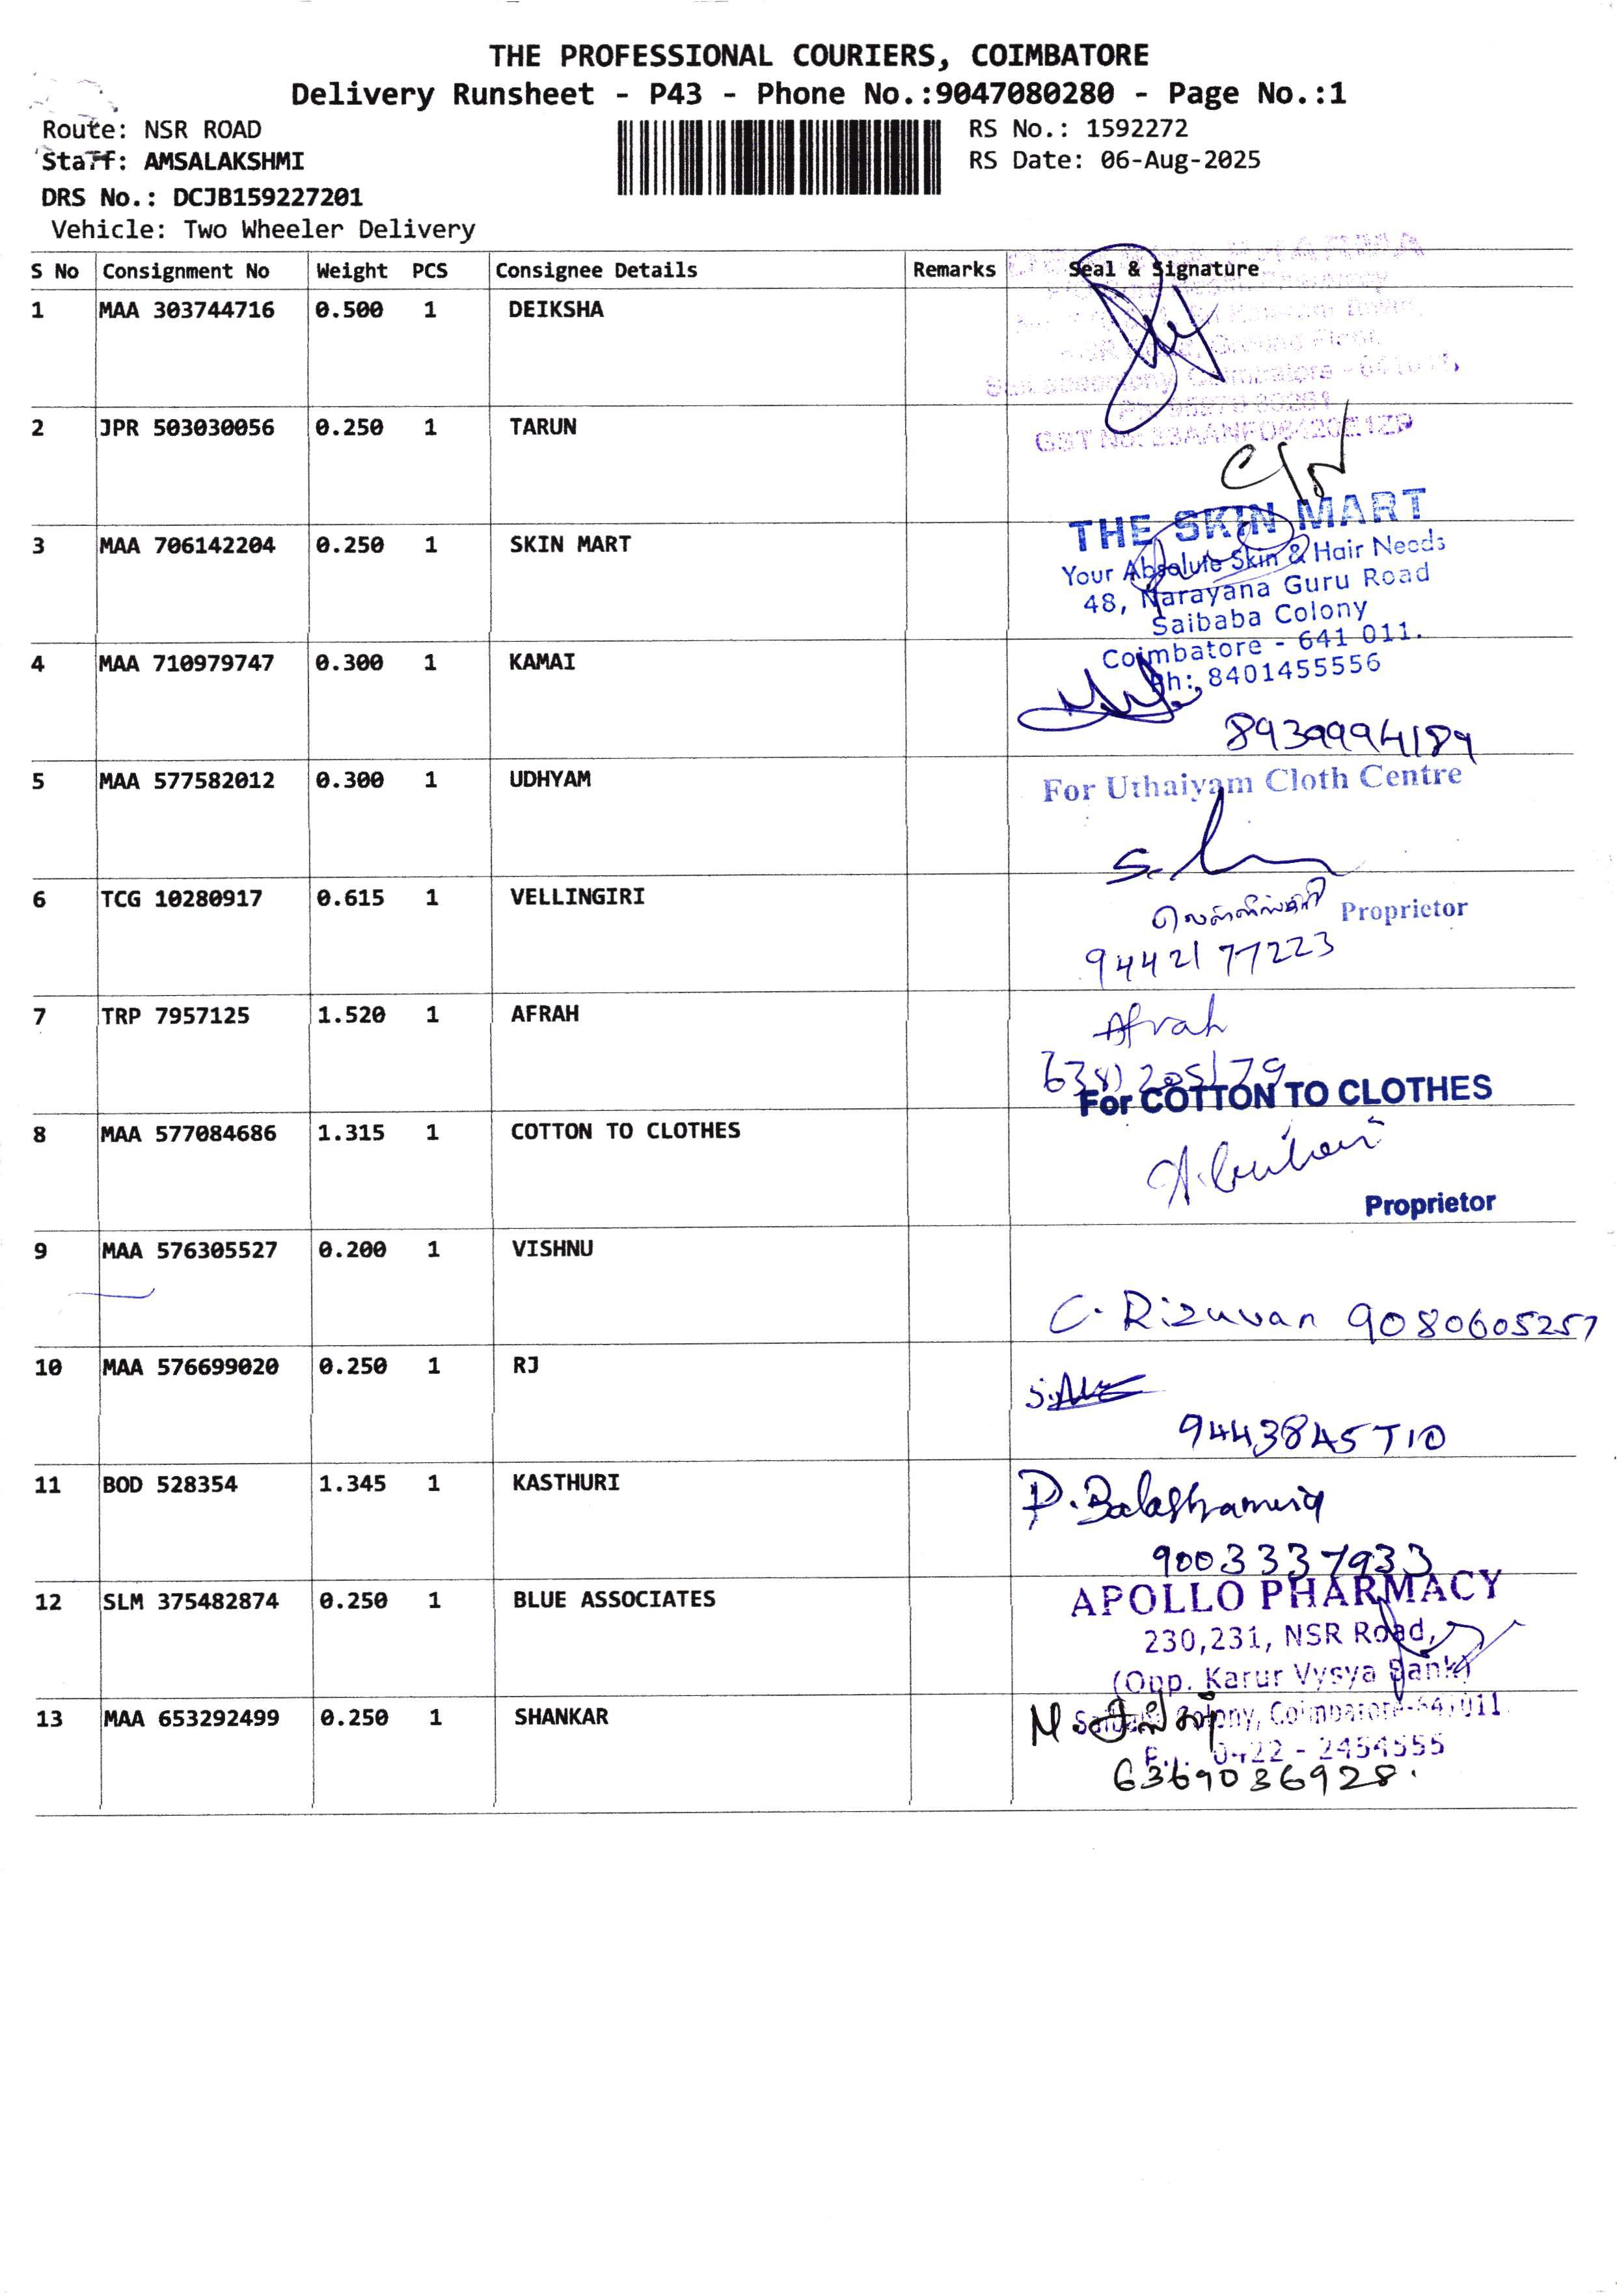 THE PROFESSIONAL COURIERS, COIMBATORE
Delivery Runsheet - P43 - Phone No.:9047080280 - Page No.:1
Route: NSR ROAD
Staff: AMSALAKSHMI
DRS No.: DCJB159227201
Vehicle: Two Wheeler Delivery
RS No.: 1592272
RS Date: 06-Aug-2025
S No Consignment No Weight PCS Consignee Details Remarks Seal & Signature
1 MAA 303744716 0.500 1 DEIKSHA
2 JPR 503030056 0.250 1 TARUN
GST No:
3 MAA 706142204 0.250 1 SKIN MART
THE SKIN MART
Your Absolute Skin & Hair Needs
48, Narayana Guru Road
Saibaba Colony
Coimbatore - 641 011.
Ph: 8401455556
4 MAA 710979747 0.300 1 KAMAI
8939994189
5 MAA 577582012 0.300 1 UDHYAM
For Uthaiyam Cloth Centre
Proprietor
6 TCG 10280917 0.615 1 VELLINGIRI
9442177223
7 TRP 7957125 1.520 1 AFRAH
Afrah
6381205179
8 MAA 577084686 1.315 1 COTTON TO CLOTHES
For COTTON TO CLOTHES
Proprietor
9 MAA 576305527 0.200 1 VISHNU
C. Rizuvan 9080605257
10 MAA 576699020 0.250 1 RJ
11 BOD 528354 1.345 1 KASTHURI
9003337933
12 SLM 375482874 0.250 1 BLUE ASSOCIATES
APOLLO PHARMACY
230,231, NSR Road,
(Opp. Karur Vysya Bank)
Saibaba Colony, Coimbatore-641011
0422 - 2454555
13 MAA 653292499 0.250 1 SHANKAR
6369036928.